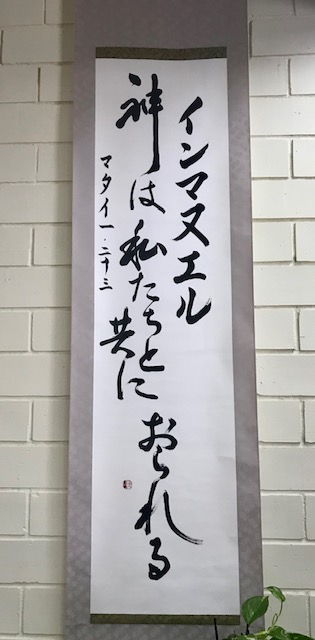 インマヌエル
神は私たちと共に
おられる
マタイ一・二十三